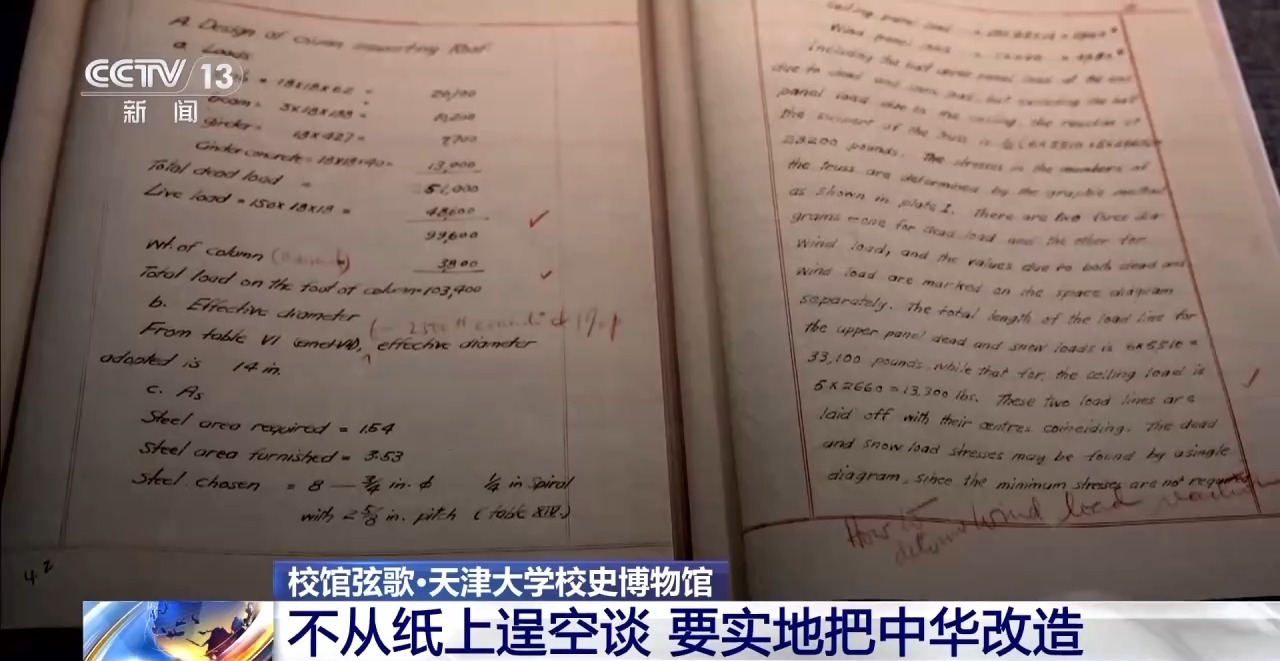 CCTV 13
新闻
A. Design of Column supporting Roof
a. Loads
= 18x18x62 = 20,100
Beam = 3x18x188 = 10,200
Girder = 18x427 = 7700
Cinder concrete = 18x18x40 = 13,000
Total dead load = 51,000
Live load = 150x18x18 = 48,600
99,600
Wt. of column 3800
Total load on the foot of column = 103,400
b. Effective diameter
From table VI (and VII), effective diameter
adopted is 14 in.
c. As
Steel area required = 1.54
Steel area furnished = 3.53
Steel chosen = 8 — 3/4 in. ϕ 1/4 in spiral
with 2 5/8 in. pitch (table XIV.)
42
Ceiling panel load
Wind panel load
Including the half upper panel load at the end
due to dead and snow load, but excluding the half
panel load due to the ceiling, the reaction at
the support of the truss is
23200 pounds. The stresses in the members of
the truss are determined by the graphic method
as shown in plate I. There are two force dia-
grams — one for dead load and the other for
wind load, and the values due to both dead and
wind load are marked on the space diagram
separately. The total length of the load line for
the upper panel dead and snow loads is 6x5510 =
33,100 pounds, while that for the ceiling load is
5x2660 = 13,300 lbs. These two load lines are
laid off with their centres coinciding. The dead
and snow load stresses may be found by a single
diagram, since the minimum stresses are not required
How to
wind load
校馆弦歌·天津大学校史博物馆
不从纸上逞空谈 要实地把中华改造